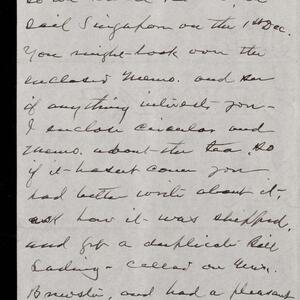 sail Singapore on the 1st Dec.
You might look over the
enclosed Memo. and see
if anything interests you —
I enclose circular and
Memo. about the tea. So
if it hasent come you
had better write about it,
ask how it was shipped,
and get a duplicate Bill
Lading — called on Mrs.
Brewster, and had a pleasant